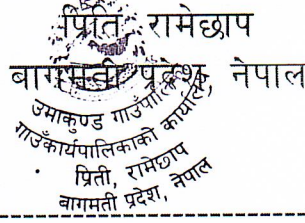 प्रिति रामेछाप
बागमती प्रदेश, नेपाल
उमाकुण्ड गाउँपालिका
गाउँकार्यपालिकाको कार्यालय
प्रिती, रामेछाप
बागमती प्रदेश, नेपाल